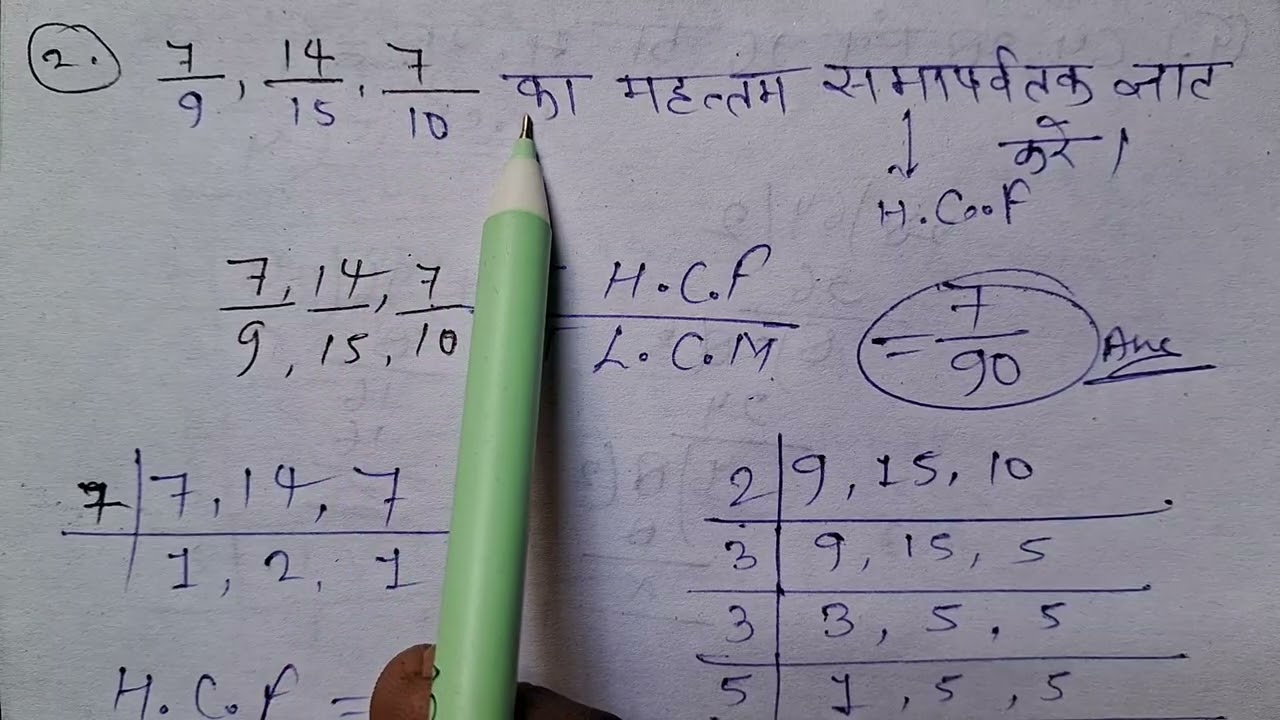 2. 7/9, 14/15, 7/10 का महत्तम समापर्वतक ज्ञात
करें।
↓
H.C.F
7/9, 14/15, 7/10 = H.C.F/L.C.M = 7/90 Ans
7 | 7, 14, 7
1, 2, 1
H.C.F =
2 | 9, 15, 10
3 | 9, 15, 5
3 | 3, 5, 5
5 | 1, 5, 5